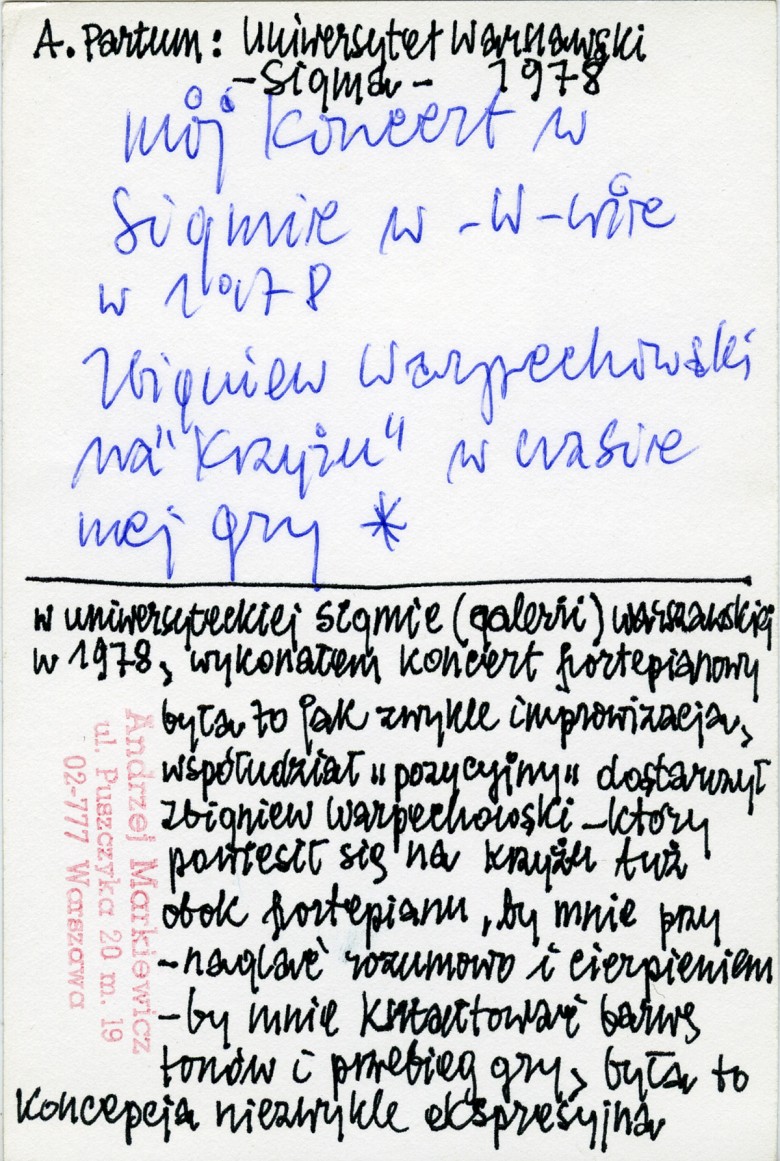 A. Partum: Uniwersytet Warszawski
-Sigma- 1978
mój koncert w
Sigmie w -W-wie
w 1978
Zbigniew Warpechowski
na "Krzyżu" w czasie
mej gry *
w uniwersyteckiej sigmie (galerii) warszawskiej
w 1978, wykonałem koncert fortepianowy
była to jak zwykle improwizacja,
współudział "pozycyjny" dostarczył
Zbigniew Warpechowski -który
powiesił się na krzyżu tuż
obok fortepianu, by mnie przy
-naglać rozumowo i cierpieniem
-by mnie kształtować barwę
tonów i przebieg gry, była to
koncepcja niezwykle ekspresyjna
Andrzej Markiewicz
ul. Puszczyka 20 m. 19
02-777 Warszawa